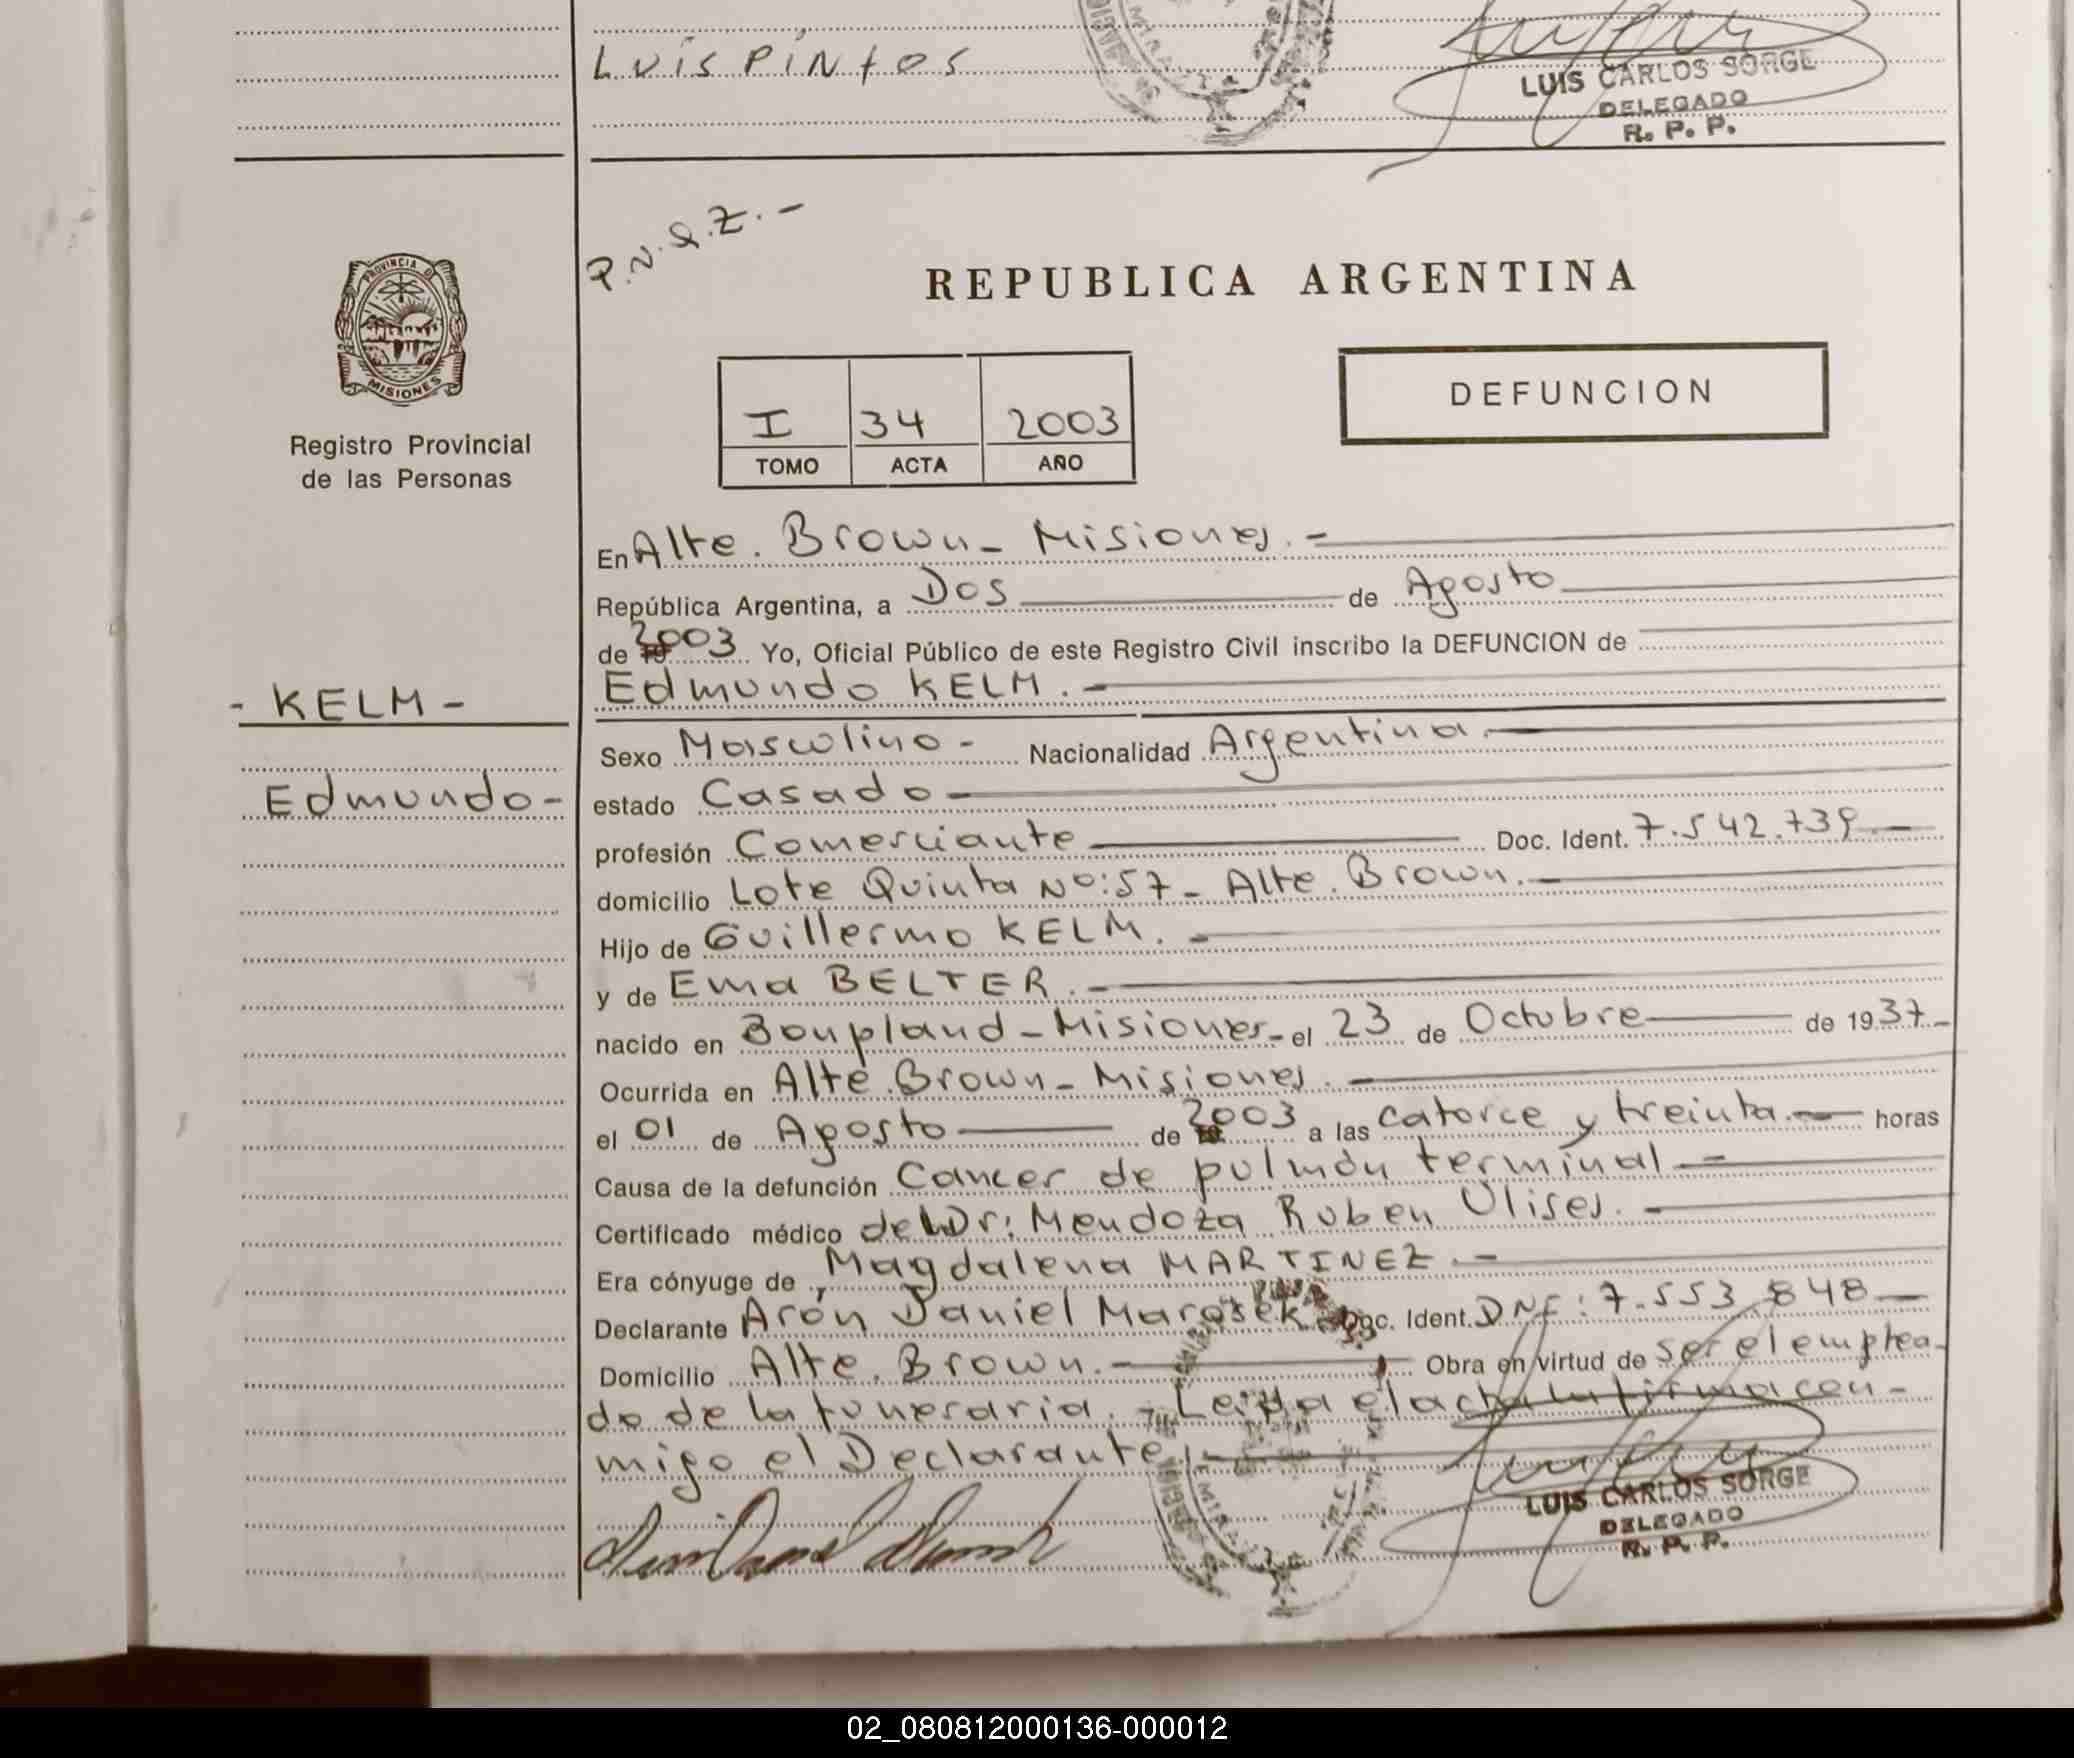 Luis Pintos
LUIS CARLOS SORGE
DELEGADO
R. P. P.
P.V.Q.Z.-
PROVINCIA D
MISIONES
Registro Provincial
de las Personas
REPUBLICA ARGENTINA
DEFUNCION
I 34 2003
TOMO ACTA AÑO
En Alte. Brown - Misiones.-
República Argentina, a Dos de Agosto
de 2003 Yo, Oficial Público de este Registro Civil inscribo la DEFUNCION de
- KELM -
Edmundo KELM.-
Sexo Masculino - Nacionalidad Argentina.-
Edmundo-
estado Casado-
profesión Comerciante Doc. Ident. 7.542.739.-
domicilio Lote Quinta Nº:57 - Alte. Brown.-
Hijo de Guillermo KELM.-
y de Ema BELTER.-
nacido en Bonpland - Misiones - el 23 de Octubre de 1937.-
Ocurrida en Alte. Brown - Misiones.-
el 01 de Agosto de 2003 a las catorce y treinta.- horas
Causa de la defunción Cancer de pulmón terminal.-
Certificado médico del Dr: Mendoza Ruben Ulises.-
Era cónyuge de Magdalena MARTINEZ.-
Declarante Arón Daniel Marosek Doc. Ident. DNI: 7.553.848-
Domicilio Alte. Brown.- Obra en virtud de ser el emplea-
do de la funeraria.- Leida el acta la firma con-
migo el Declarante.-
LUIS CARLOS SORGE
DELEGADO
R. P. P.
02_080812000136-000012